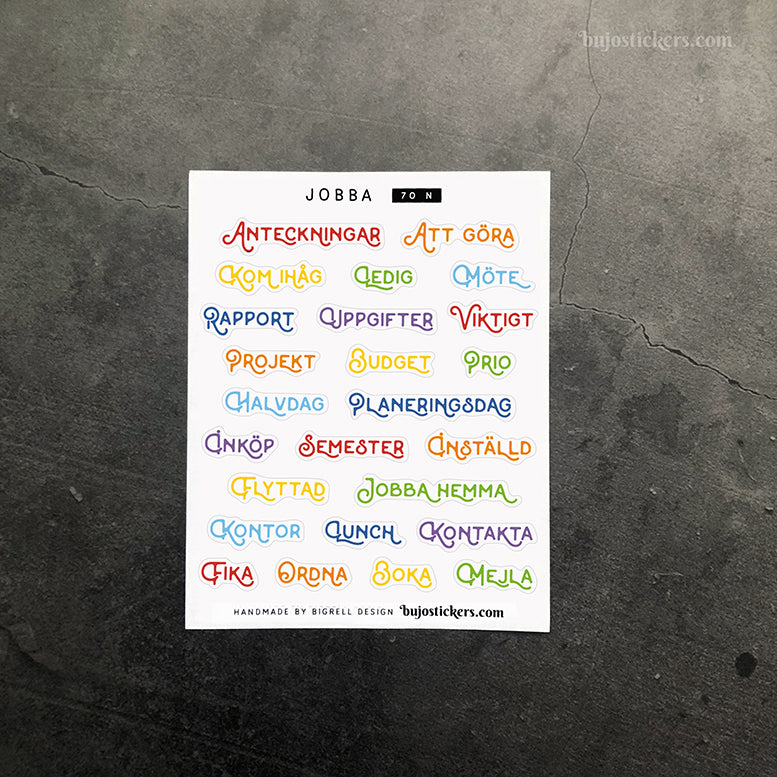 bujostickers.com
JOBBA 70 N
ANTECKNINGAR ATT GÖRA
KOM IHÅG LEDIG MÖTE
RAPPORT UPPGIFTER VIKTIGT
PROJEKT BUDGET PRIO
HALVDAG PLANERINGSDAG
INKÖP SEMESTER INSTÄLLD
FLYTTAD JOBBA HEMMA
KONTOR LUNCH KONTAKTA
FIKA ORDNA BOKA MEJLA
HANDMADE BY BIGRELL DESIGN bujostickers.com